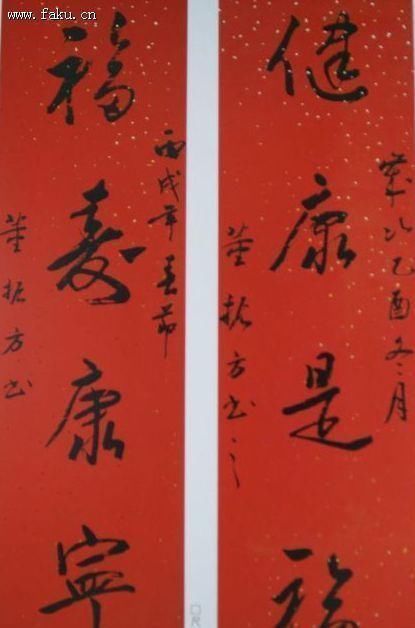 www.faku.cn
健康是福
岁次乙酉冬月
董振方书
福寿康宁
丙戌年春节
董振方书